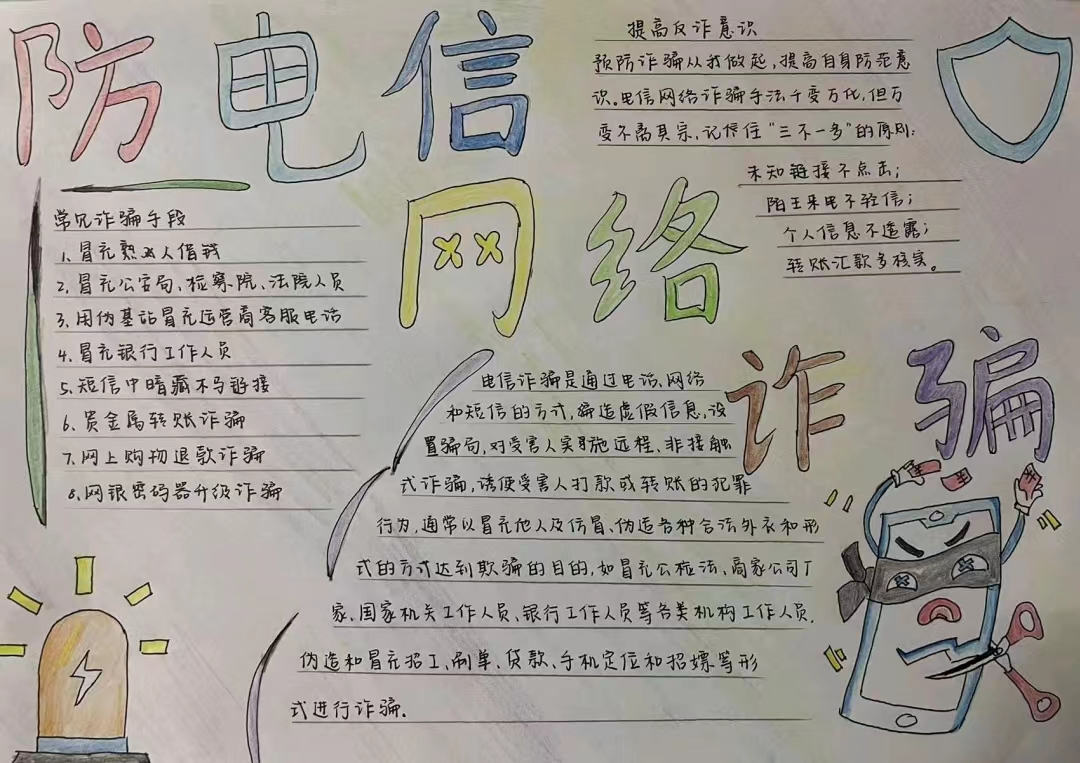 防电信
网络
诈骗
提高反诈意识
预防诈骗从我做起,提高自身防范意
识。电信网络诈骗手法千变万化,但万
变不离其宗,记住“三不一多”的原则:
未知链接不点击;
陌生来电不轻信;
个人信息不透露;
转账汇款多核实。
常见诈骗手段
1、冒充熟人借钱
2、冒充公安局、检察院、法院人员
3、用伪基站冒充运营商客服电话
4、冒充银行工作人员
5、短信中暗藏木马链接
6、贵金属转账诈骗
7、网上购物退款诈骗
8、网银密码器升级诈骗
电信诈骗是通过电话、网络
和短信的方式,编造虚假信息,设
置骗局,对受害人实施远程、非接触
式诈骗,诱使受害人打款或转账的犯罪
行为,通常以冒充他人及仿冒、伪造各种合法外衣和形
式的方式达到欺骗的目的,如冒充公检法、商家公司厂
家、国家机关工作人员、银行工作人员等各类机构工作人员,
伪造和冒充招工、刷单、贷款、手机定位和招嫖等形
式进行诈骗.